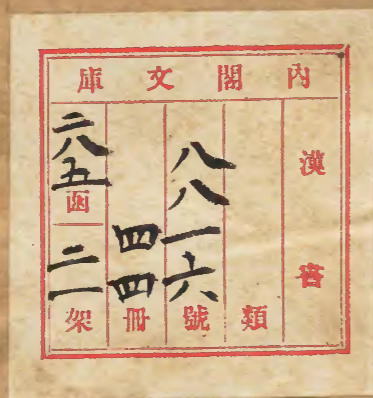 內閣文庫
漢書
類
八八一六號
四四冊
二八五函
二一架